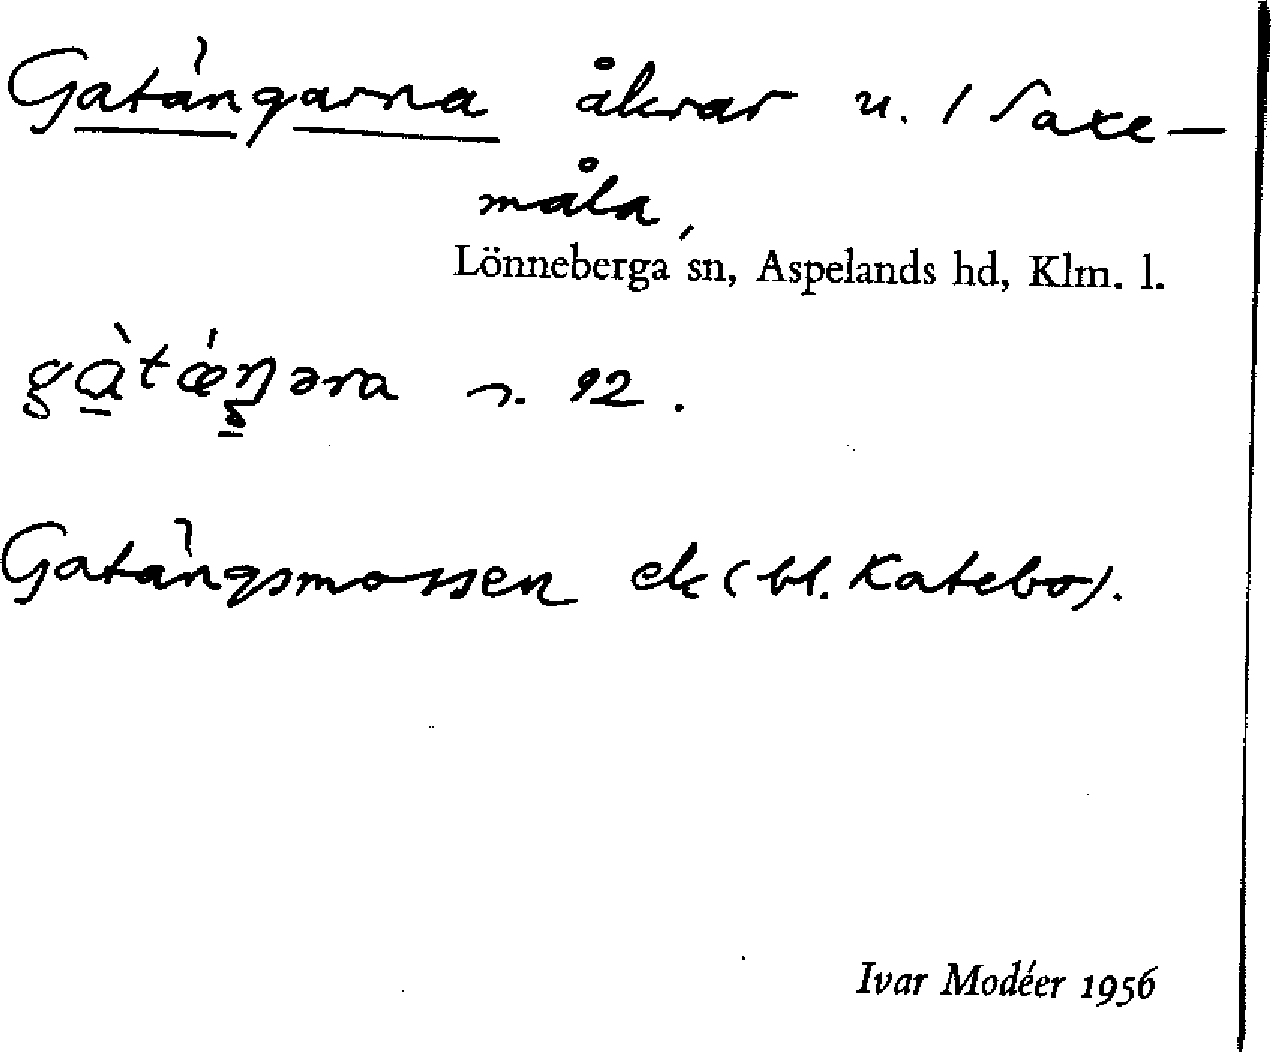 Gatängarna åkrar u. 1 Saxe-
måla,
Lönneberga sn, Aspelands hd, Klm. l.
gàtǽŋəra s. 92.
Gatängsmossen ek (bl. Katebo).
Ivar Modéer 1956